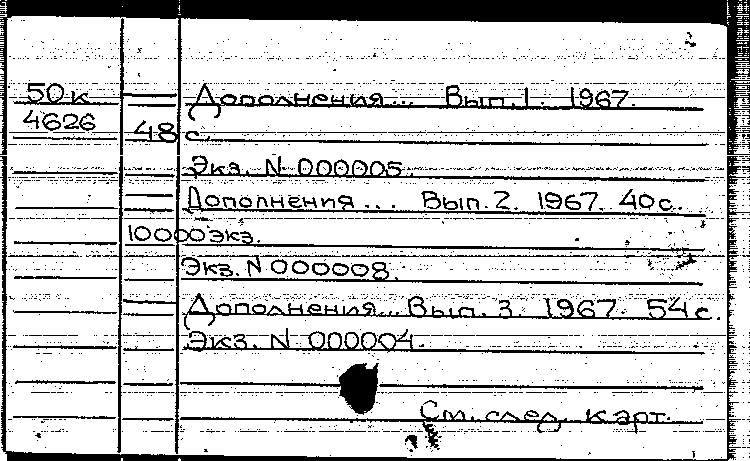 2
50к Дополнения... Вып.1. 1967.
4626 48 с.
Экз. N 000005.
Дополнения... Вып.2. 1967. 40с.
10000экз.
Экз. N 000008.
Дополнения... Вып. 3. 1967. 54с.
Экз. N 000004.
См. след. карт.